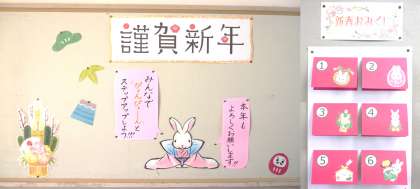 謹賀新年
本年も
よろしくお願いします!!
みんなで
ぴょんぴょーんと
ステップアップしよう!!!
新春おみくじ
①
②
③
④
⑤
⑥